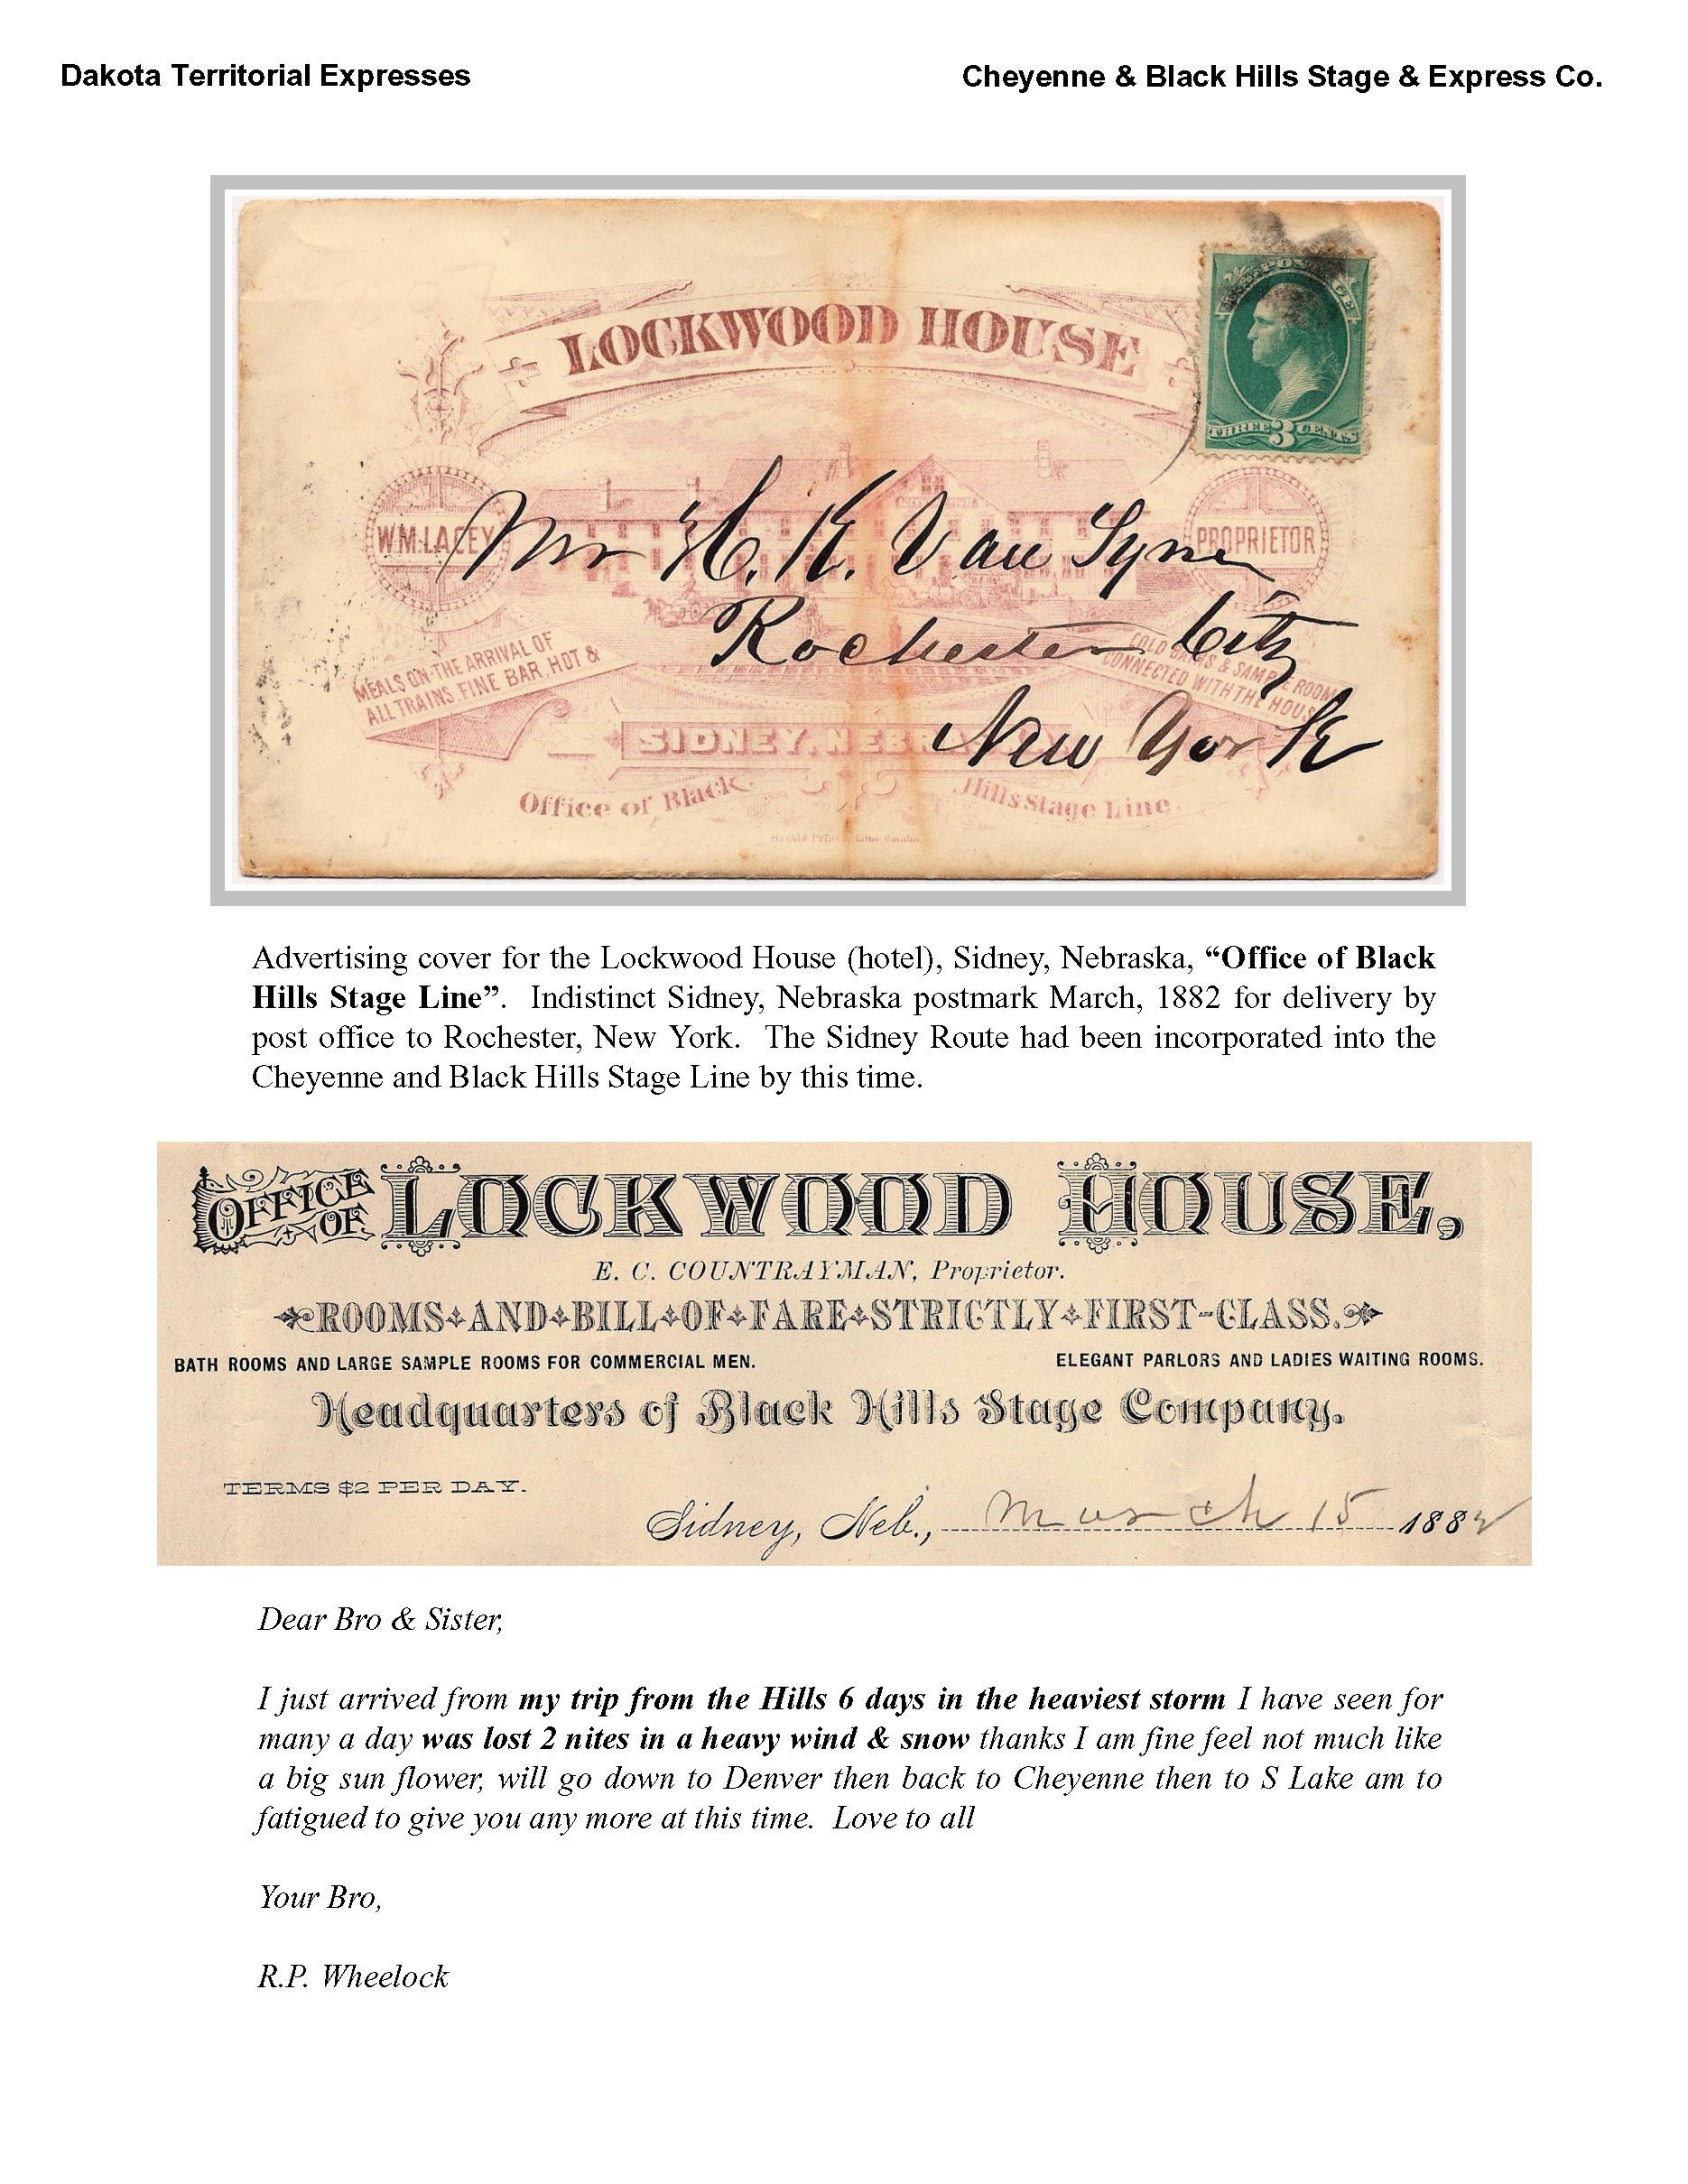 Dakota Territorial Expresses
Cheyenne & Black Hills Stage & Express Co.
LOCKWOOD HOUSE
U.S. POSTAGE
THREE 3 CENTS
WM. LACEY
PROPRIETOR
Mr H. K. Van
Rochester City
New York
MEALS ON THE ARRIVAL OF
ALL TRAINS. FINE BAR, HOT &
COLD BATHS & SAMPLE ROOM
CONNECTED WITH THE HOUS
SIDNEY, NEBRA
Office of Black Hills Stage Line.
Advertising cover for the Lockwood House (hotel), Sidney, Nebraska, “Office of Black
Hills Stage Line”.  Indistinct Sidney, Nebraska postmark March, 1882 for delivery by
post office to Rochester, New York.  The Sidney Route had been incorporated into the
Cheyenne and Black Hills Stage Line by this time.
OFFICE OF LOCKWOOD HOUSE,
E. C. COUNTRAYMAN, Proprietor.
ROOMS AND BILL OF FARE STRICTLY FIRST-CLASS.
BATH ROOMS AND LARGE SAMPLE ROOMS FOR COMMERCIAL MEN.
ELEGANT PARLORS AND LADIES WAITING ROOMS.
Headquarters of Black Hills Stage Company.
TERMS $2 PER DAY.
Sidney, Neb., March 15 1882
Dear Bro & Sister,
I just arrived from my trip from the Hills 6 days in the heaviest storm I have seen for
many a day was lost 2 nites in a heavy wind & snow thanks I am fine feel not much like
a big sun flower, will go down to Denver then back to Cheyenne then to S Lake am to
fatigued to give you any more at this time.  Love to all
Your Bro,
R.P. Wheelock